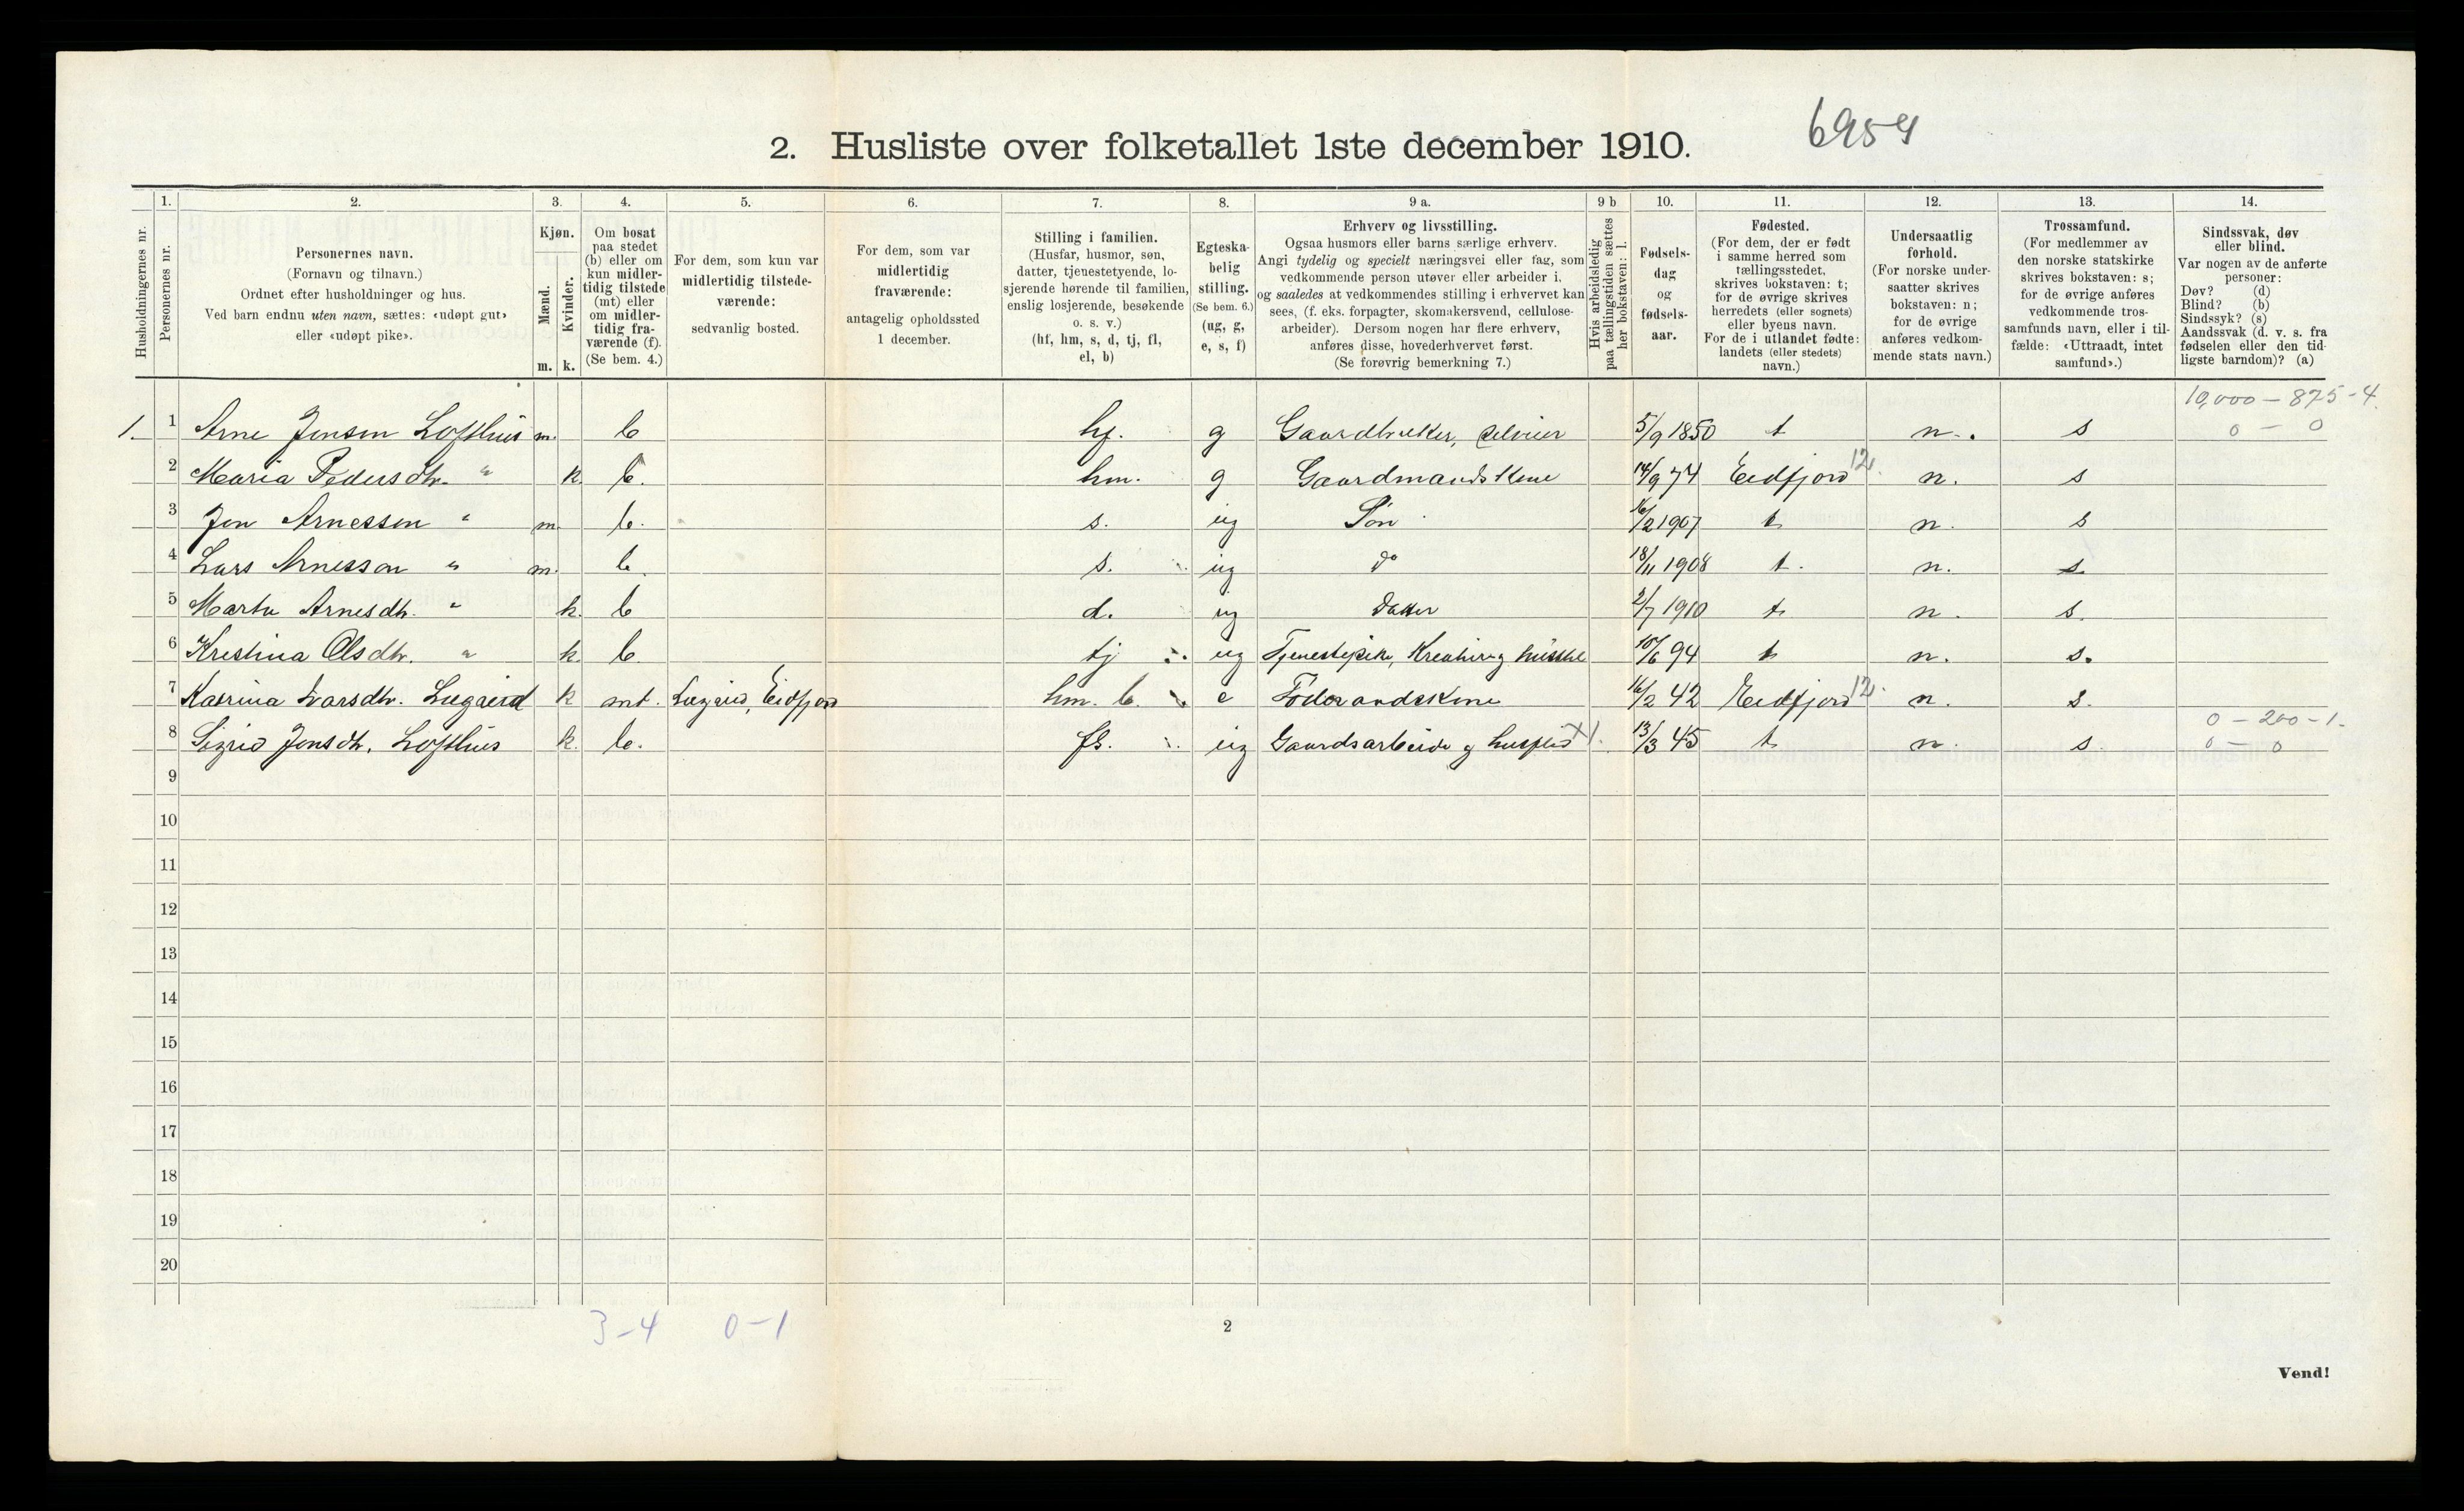 2. Husliste over folketallet 1ste december 1910. 6954
Husholdningernes nr.
1. Personernes nr.
2. Personernes navn.
(Fornavn og tilnavn.)
Ordnet efter husholdninger og hus.
Ved barn endnu uten navn, sættes: «udøpt gut»
eller «udøpt pike».
3. Kjøn.
Mænd. m.
Kvinder. k.
4. Om bosat
paa stedet
(b) eller om
kun midler-
tidig tilstede
(mt) eller
om midler-
tidig fra-
værende (f).
(Se bem. 4.)
5. For dem, som kun var
midlertidig tilstede-
værende:
sedvanlig bosted.
6. For dem, som var
midlertidig
fraværende:
antagelig opholdssted
1 december.
7. Stilling i familien.
(Husfar, husmor, søn,
datter, tjenestetyende, lo-
sjerende hørende til familien,
enslig losjerende, besøkende
o. s. v.)
(hf, hm, s, d, tj, fl,
el, b)
8. Egteska-
belig
stilling.
(Se bem. 6.)
(ug, g,
e, s, f)
9 a. Erhverv og livsstilling.
Ogsaa husmors eller barns særlige erhverv.
Angi tydelig og specielt næringsvei eller fag, som
vedkommende person utøver eller arbeider i,
og saaledes at vedkommendes stilling i erhvervet kan
sees, (f. eks. forpagter, skomakersvend, cellulose-
arbeider). Dersom nogen har flere erhverv,
anføres disse, hovederhvervet først.
(Se forøvrig bemerkning 7.)
9 b Hvis arbeidsledig
paa tællingstiden sættes
her bokstaven: l.
10. Fødsels-
dag
og
fødsels-
aar.
11. Fødested.
(For dem, der er født
i samme herred som
tællingsstedet,
skrives bokstaven: t;
for de øvrige skrives
herredets (eller sognets)
eller byens navn.
For de i utlandet fødte:
landets (eller stedets)
navn.)
12. Undersaatlig
forhold.
(For norske under-
saatter skrives
bokstaven: n;
for de øvrige
anføres vedkom-
mende stats navn.)
13. Trossamfund.
(For medlemmer av
den norske statskirke
skrives bokstaven: s;
for de øvrige anføres
vedkommende tros-
samfunds navn, eller i til-
fælde: «Uttraadt, intet
samfund».)
14. Sindssvak, døv
eller blind.
Var nogen av de anførte
personer:
Døv? (d)
Blind? (b)
Sindssyk? (s)
Aandssvak (d. v. s. fra
fødselen eller den tid-
ligste barndom)? (a)
10,000 - 875 - 4.
1. 1 Arne Jonson Lofthus m. b hf. g Gaardbruker, selveier 5/9 1850 t n. s 0 - 0
2 Maria Pedersdtr. " k. b. hm. g Gaardmandskone 14/9 74 Eidfjord 12. n. s
3 Jon Arnesson " m. b. s. ug Søn 16/2 1907 t n. s
4 Lars Arnesson " m. b. s. ug do 18/11 1908 t. n. s.
5 Marta Arnesdtr. " k. b d. ug datter 2/7 1910 t n. s.
6 Kristina Olsdtr. " k. b tj ug Tjenestepike, Kreatur og husstel 10/6 94 t n. s.
7 Katrina Ivarsdtr. Lægreid k mt. Lægreid, Eidfjord hm. b. e Føderaadskone 16/2 42 Eidfjord 12. n. s.
0 - 200 - 1.
8 Sigrid Jonsdtr. Lofthus k. b. fl. ug Gaardsarbeide og husflid X1. 13/3 45 t n. s. 0 - 0
9
10
11
12
13
14
15
16
17
18
19
20
3-4 0-1
2
Vend!